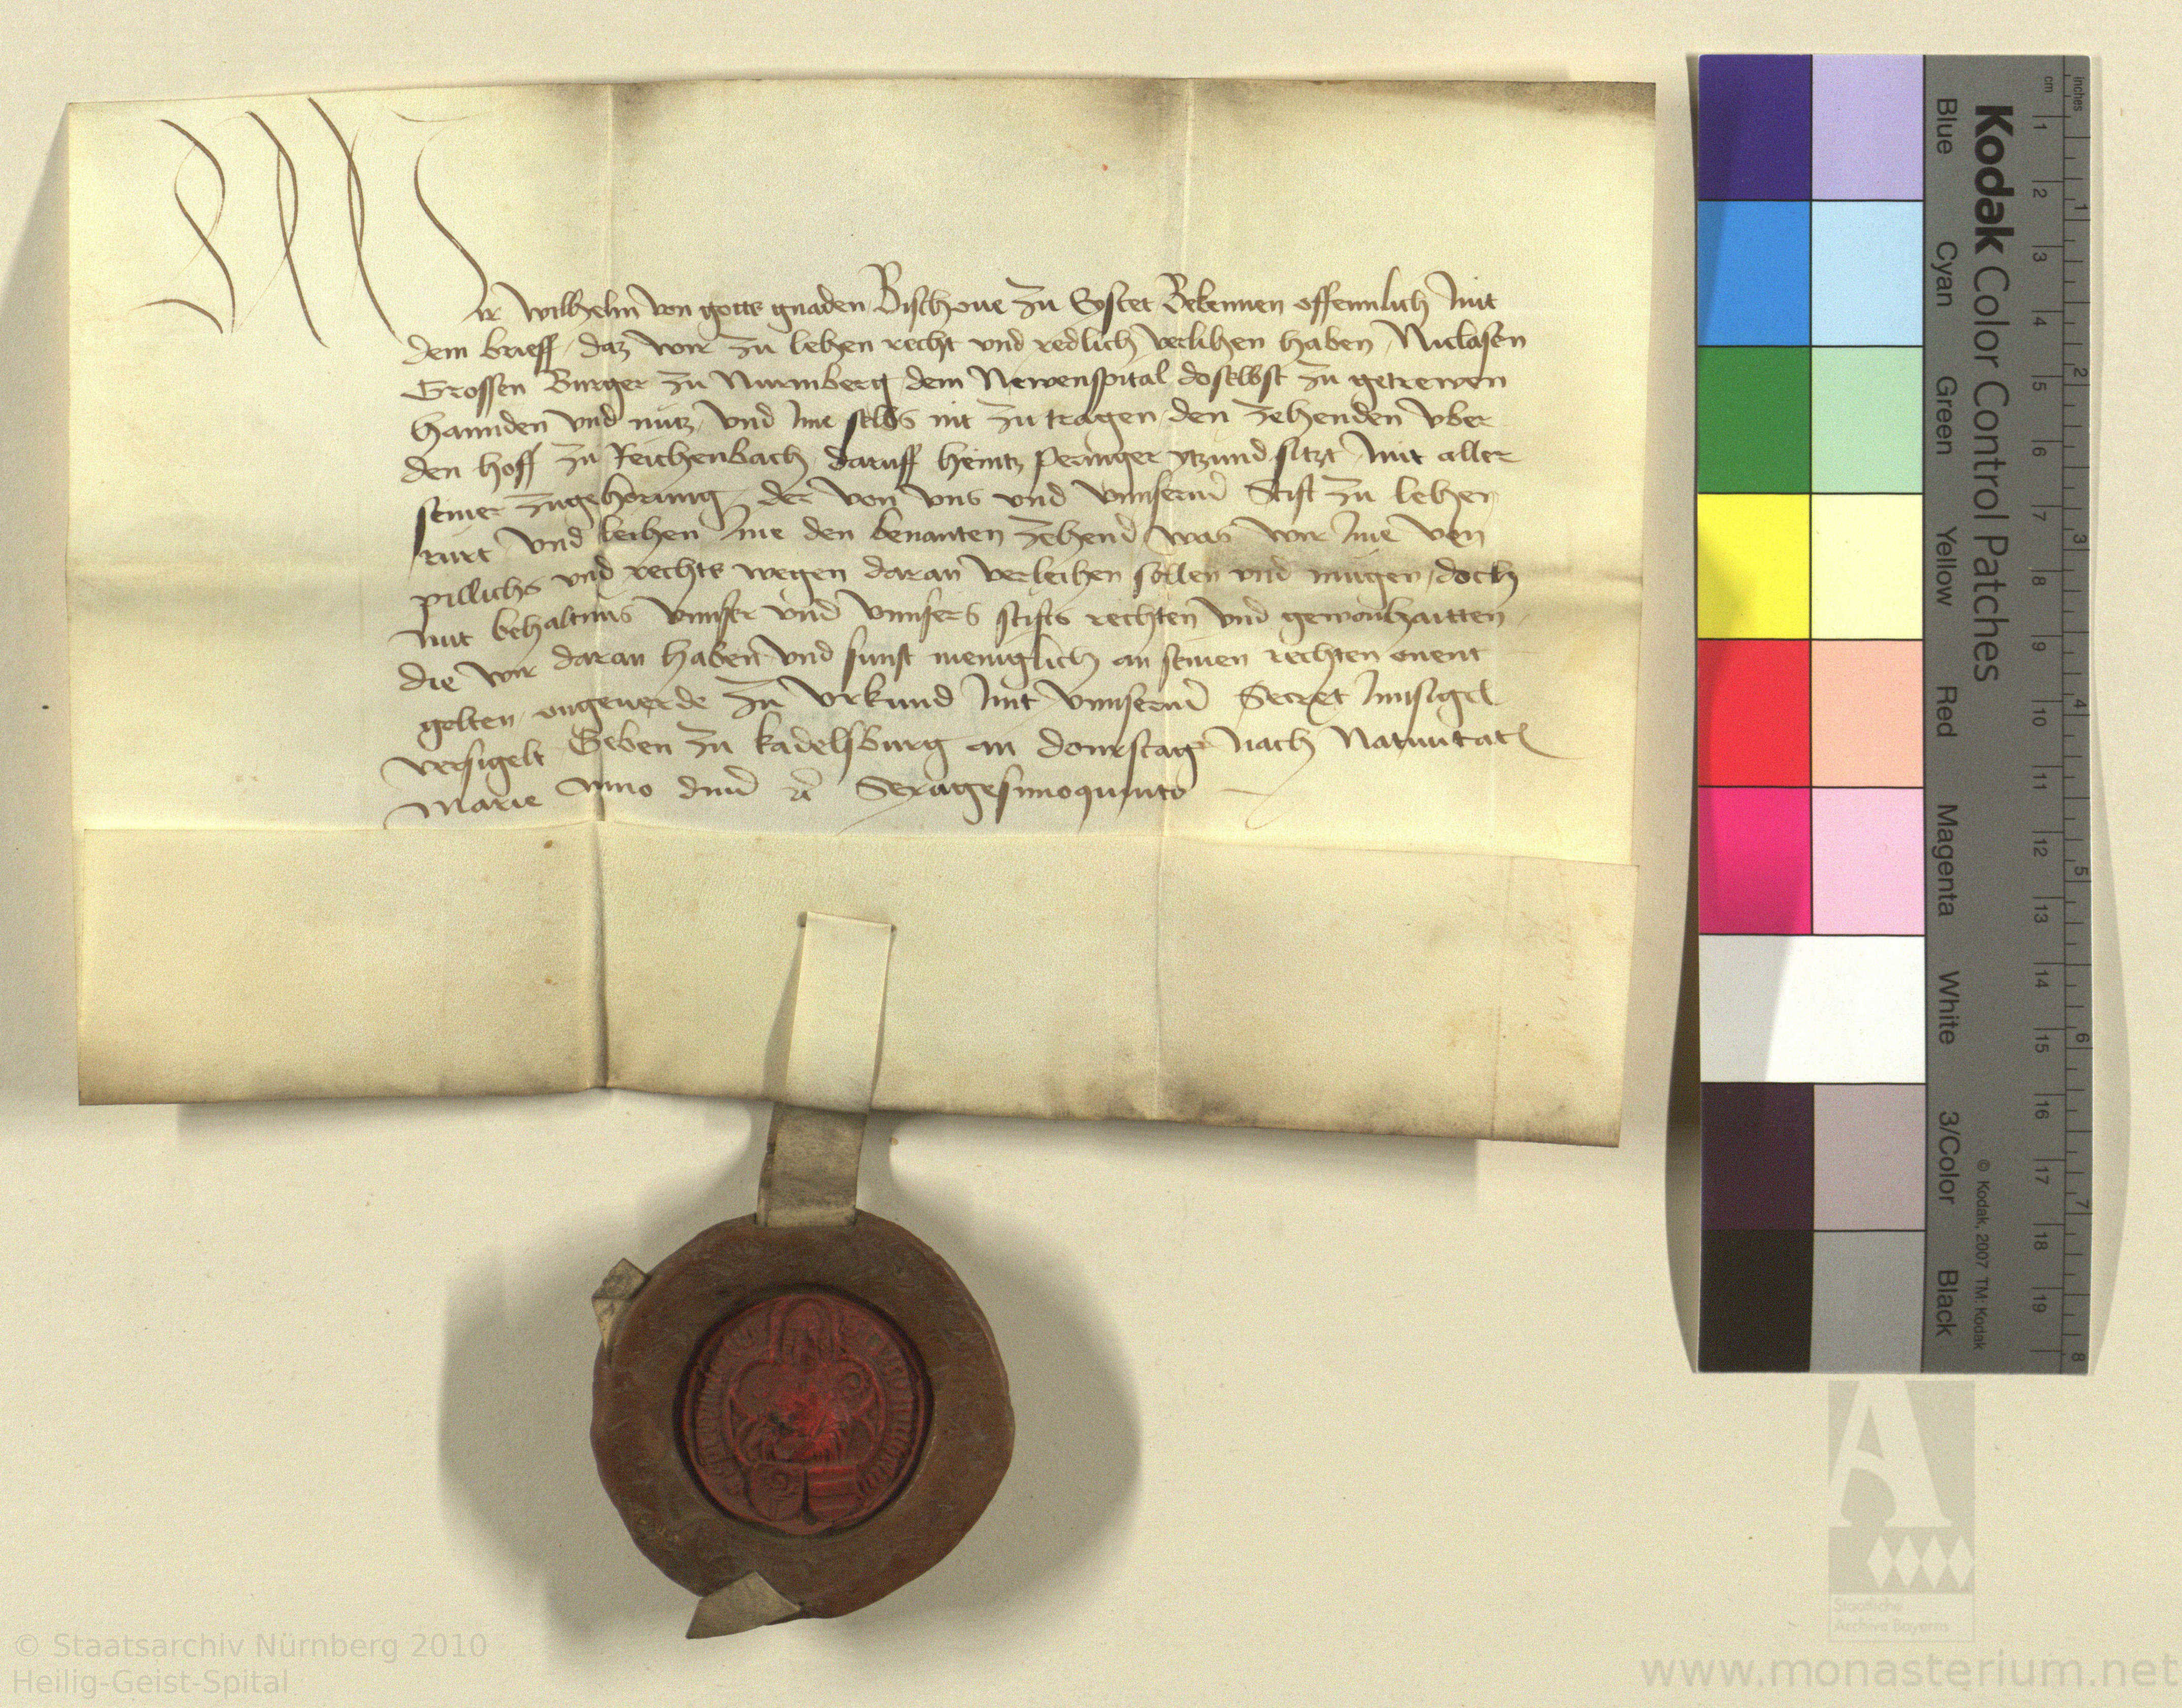 Wir Wilhelm von gotts gnaden Bischoue zu Eystet Bekennen offennlich mit
dem brieff, daz wir zu lehen recht vnd redlich verlihen haben, Niclasen
Grossen Burger zu Nurmberg, dem Newenspital doselbst zu getrewen
hannden vnd nutz, vnd ime selbs nit zu tragen, den zehenden vber
den hoff zu Reichenbach, daruff heintz peringer ytzund sitzt mit aller
seiner zugehorung, der von vns vnd vnnserm Stift zu lehen
rurt vnd leihen ime den benanten zehend was wir ime von
pillichs vnd rechts wegen daran verleihen sollen vnd mugen, doch
mit behaltnus vnnser vnd vnnsers stifts rechten vnd gewonhaitten,
die wir daran haben vnd sunst meniglich an seinen rechten onent
gelten, ongeuerde zu vrkund mit vnnserm Secret innsigel
versigelt Geben zu kadelsburg an donrstag nach Natiuitatis
Marie Anno dni etc Sexagesimoquinto
Kodak Color Control Patches
Blue Cyan Green Yellow Red Magenta White 3/Color Black
© Kodak, 2007 TM: Kodak
cm 1 2 3 4 5 6 7 8 9 10 11 12 13 14 15 16 17 18 19
inches 1 2 3 4 5 6 7 8
Staatliche
Archive Bayerns
© Staatsarchiv Nürnberg 2010
Heilig-Geist-Spital
www.monasterium.net